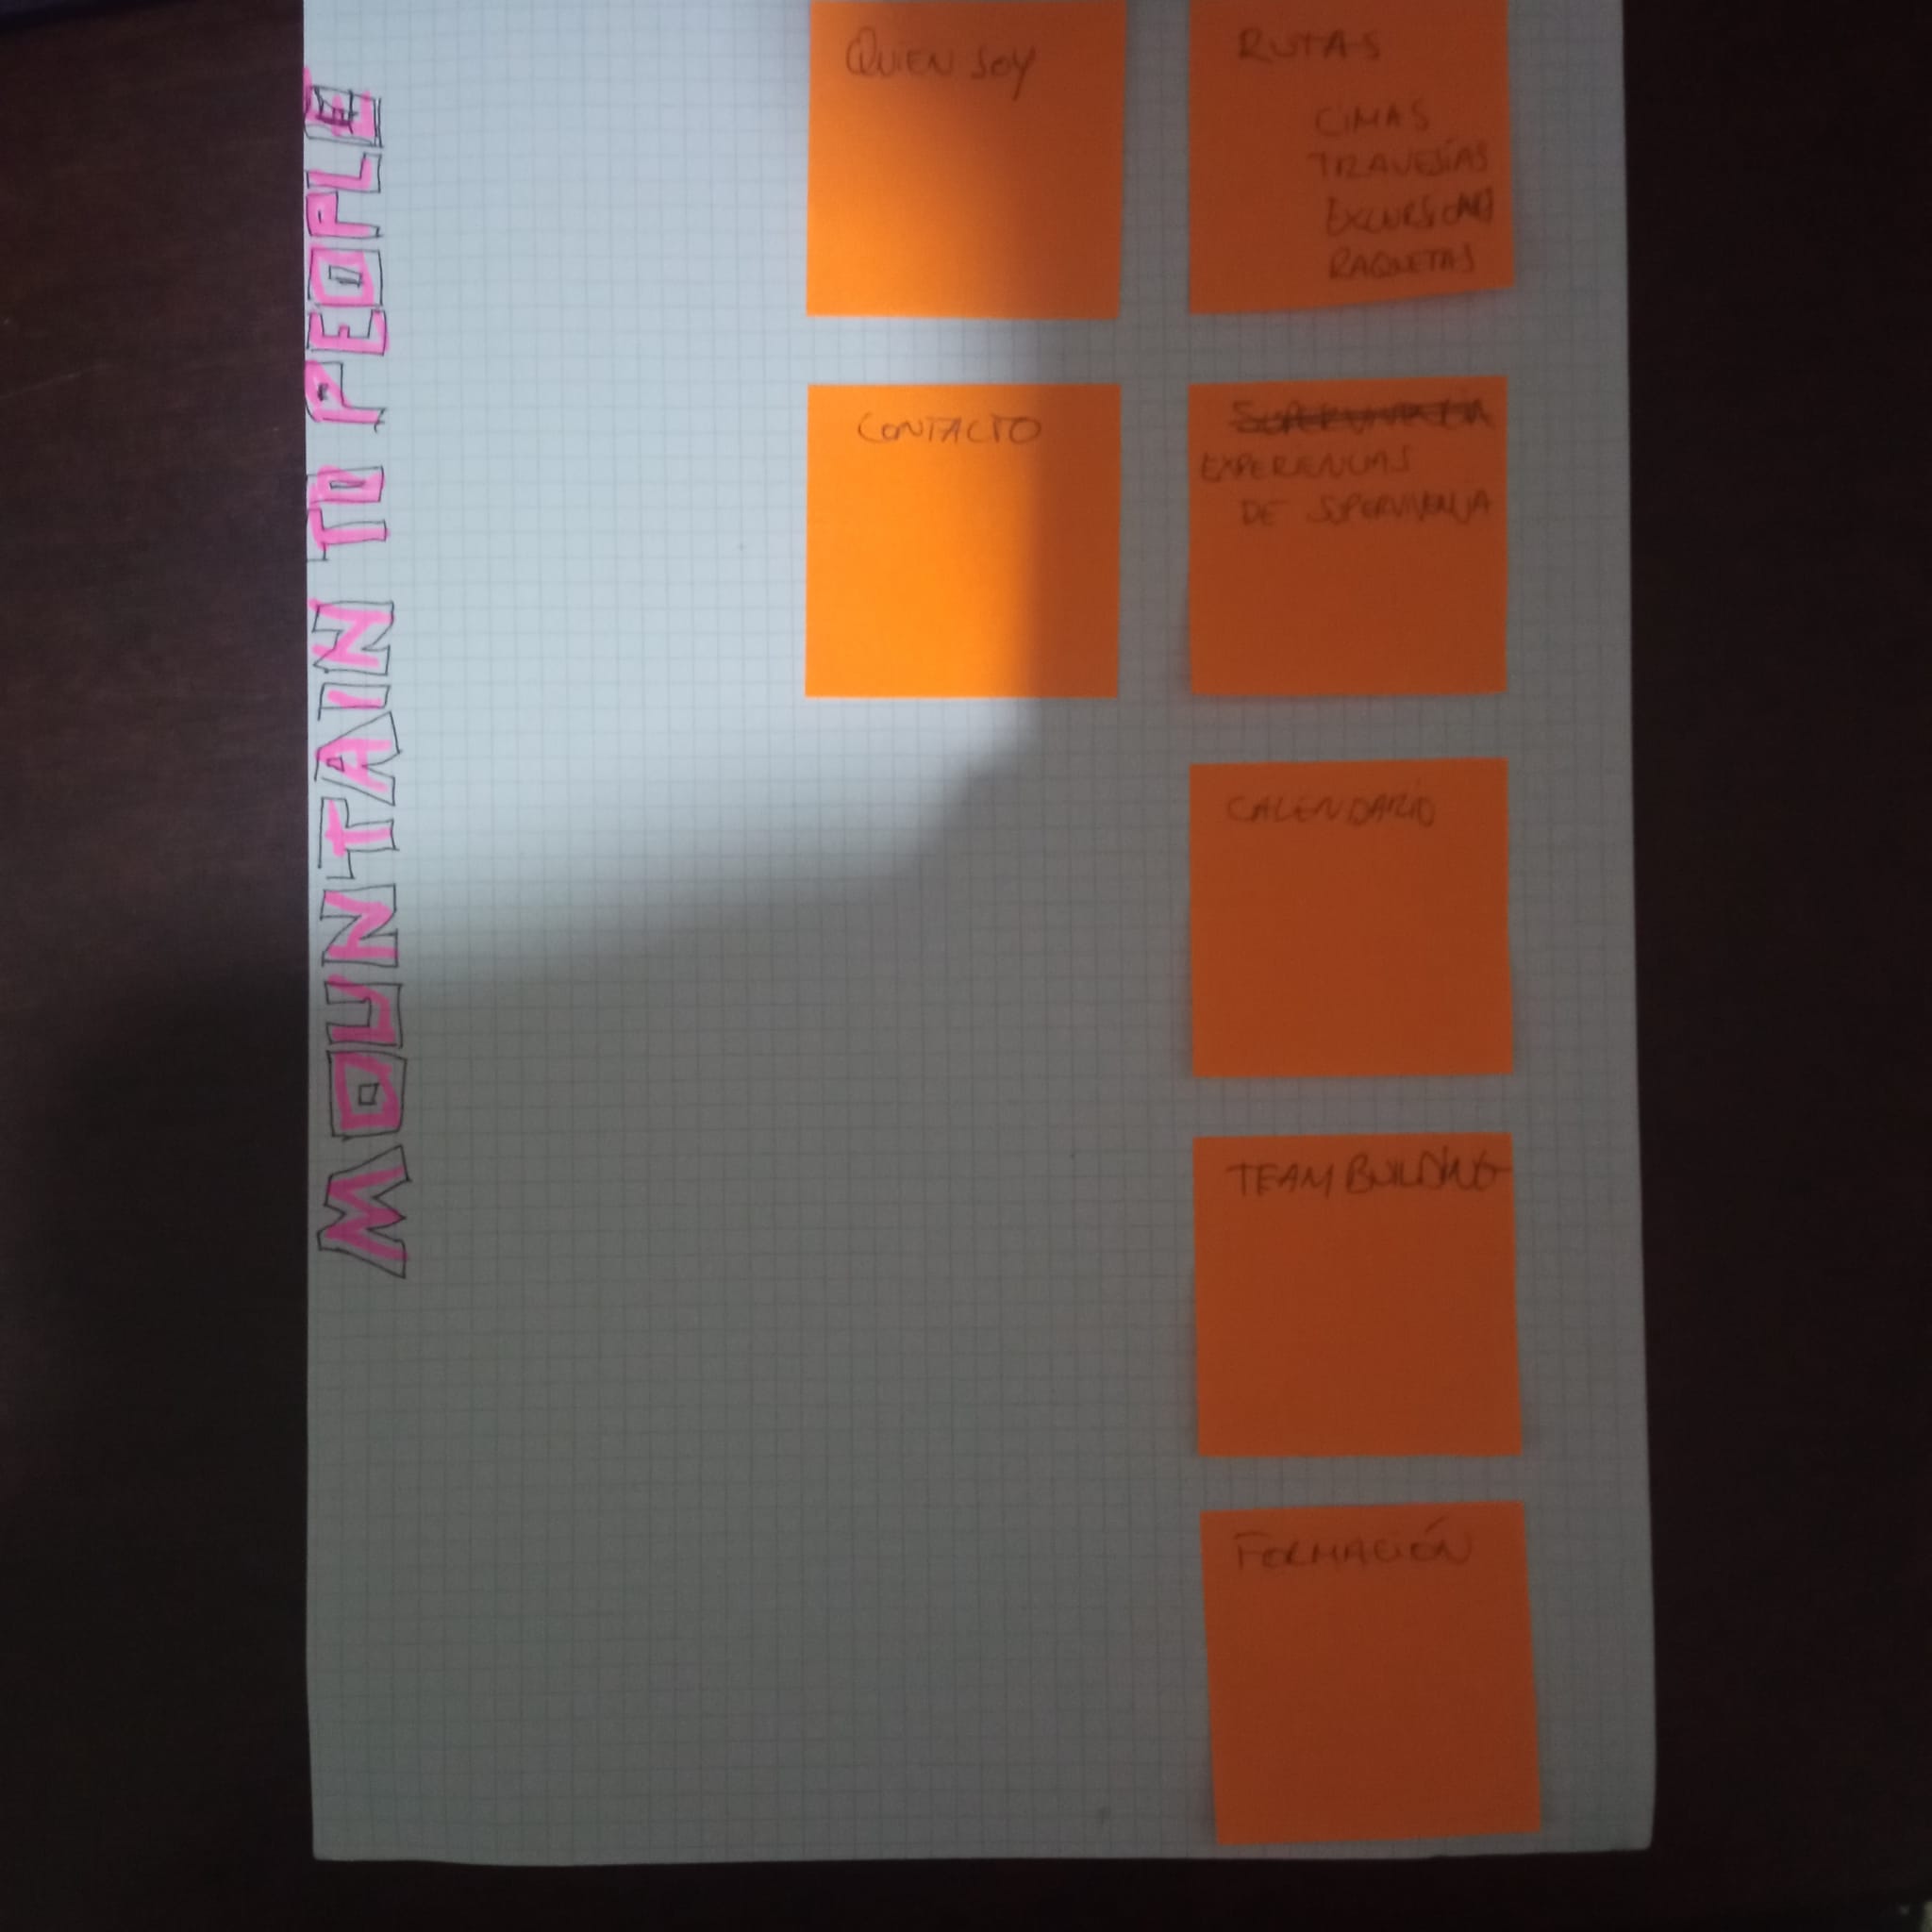 MOUNTAIN TO PEOPLE
QUIEN SOY
CONTACTO
RUTAS
CIMAS
TRAVESÍAS
EXCURSIONES
RAQUETAS
SUPERVIVENCIA
EXPERIENCIAS
DE SUPERVIVENCIA
CALENDARIO
TEAM BUILDING
FORMACIÓN